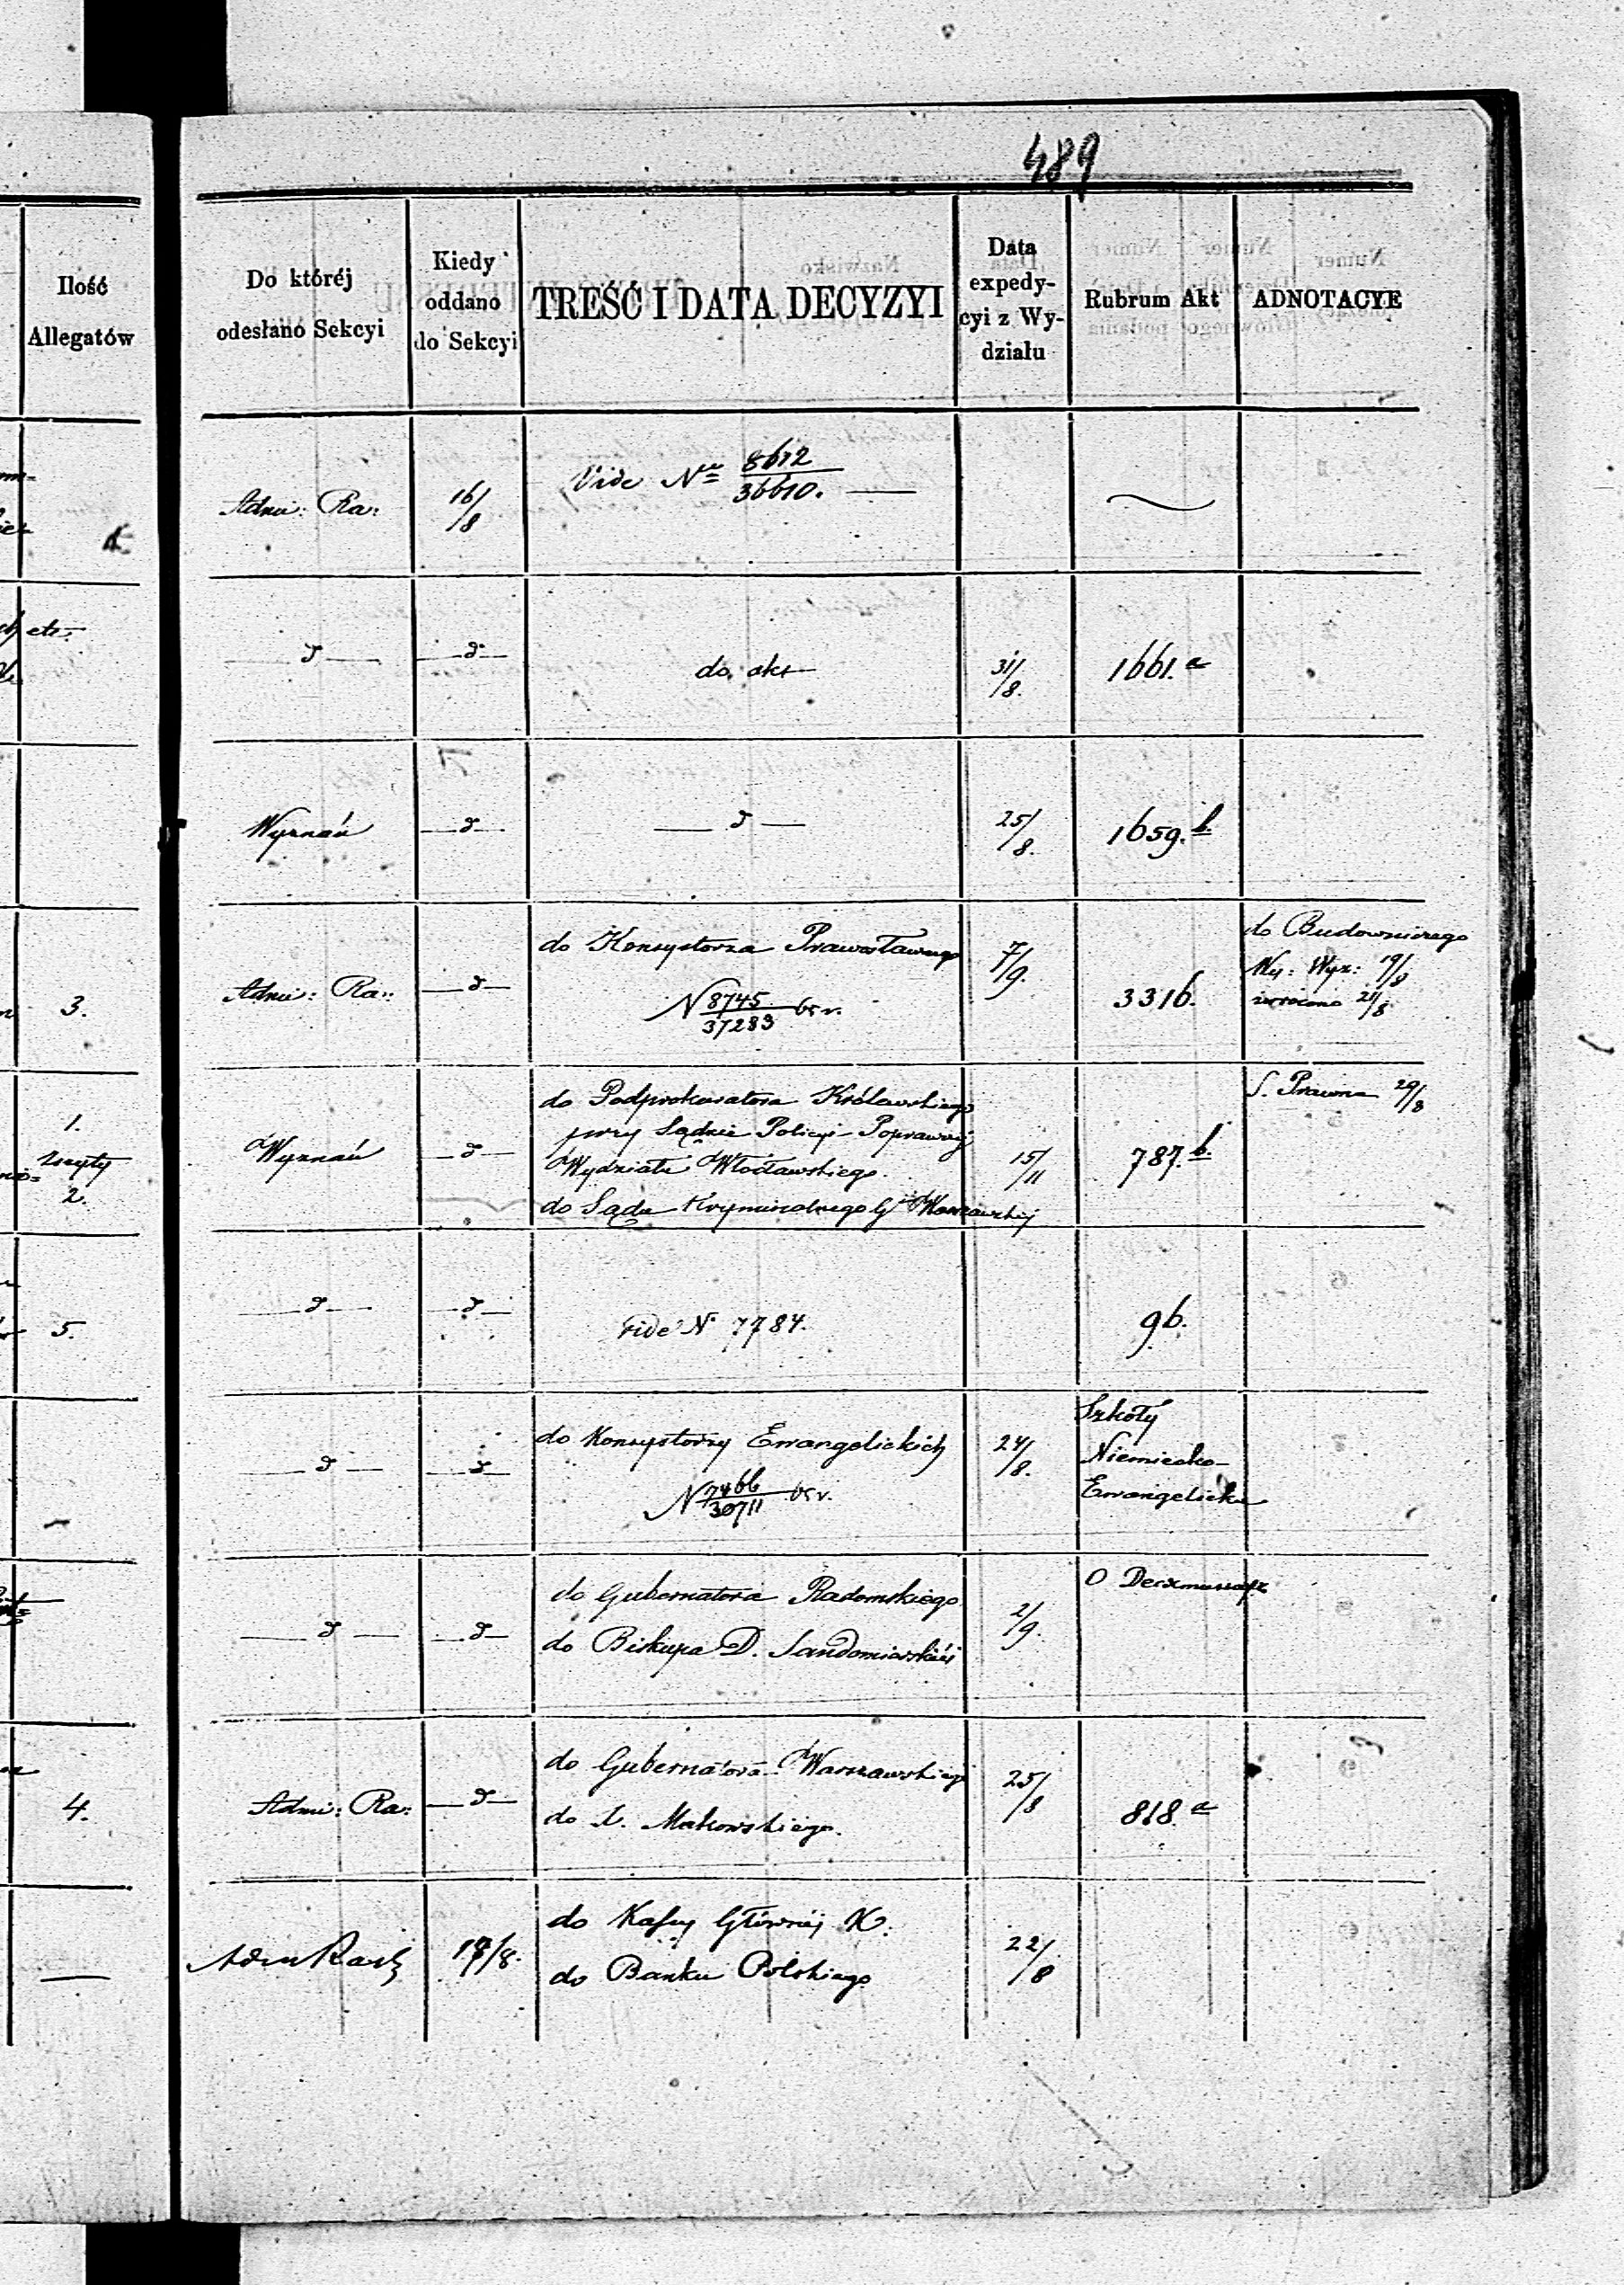 489
Ilość
Allegatów
Do któréj
odesłano Sekcyi
Kiedy
oddano
do Sekcyi
TREŚĆ I DATA DECYZYI
Data
expedy-
cyi z Wy-
działu
Rubrum Akt
ADNOTACYE
Adm: Ra:
16/8
Vide No 8612/36610. —
— d —
— d —
do akt
31/8.
1661. a
Wyznań
— d —
— d —
25/8.
1659. b.
3.
Adm: Ra:
— d —
do Konsystorza Prawosławnego
N 8745/37283 br v.
7/9.
3316.
do Budowniczego
Wy: Wyz: 19/8
zwrócono 21/8.
1.
Zszyty
2.
Wyznań
— d —
do Podprokuratora Królewskiego
przy Sądzie Policyi Poprawczéj
Wydziału Włocławskiego.
do Sądu Kryminalnego G Warszawskiéj
15/11
787. b.
S. Prawna 29/8
5.
— d —
— d —
vide N 7784.
96.
— d —
— d —
do Konsystorzy Ewangelickich
N 7466/30711 br v.
24/8.
Szkoły
Niemiecko-
Ewangelickie
— d —
— d —
do Gubernatora Radomskiego
do Biskupa D. Sandomierskiéj
2/9.
O
4.
Adm: Ra:
— d —
do Gubernatora Warszawskiego
do X. Makowskiego.
25/8
818. a
—
Adm Rach
18/8.
do Kassy Głównéj K.
do Banku Polskiego
22/8